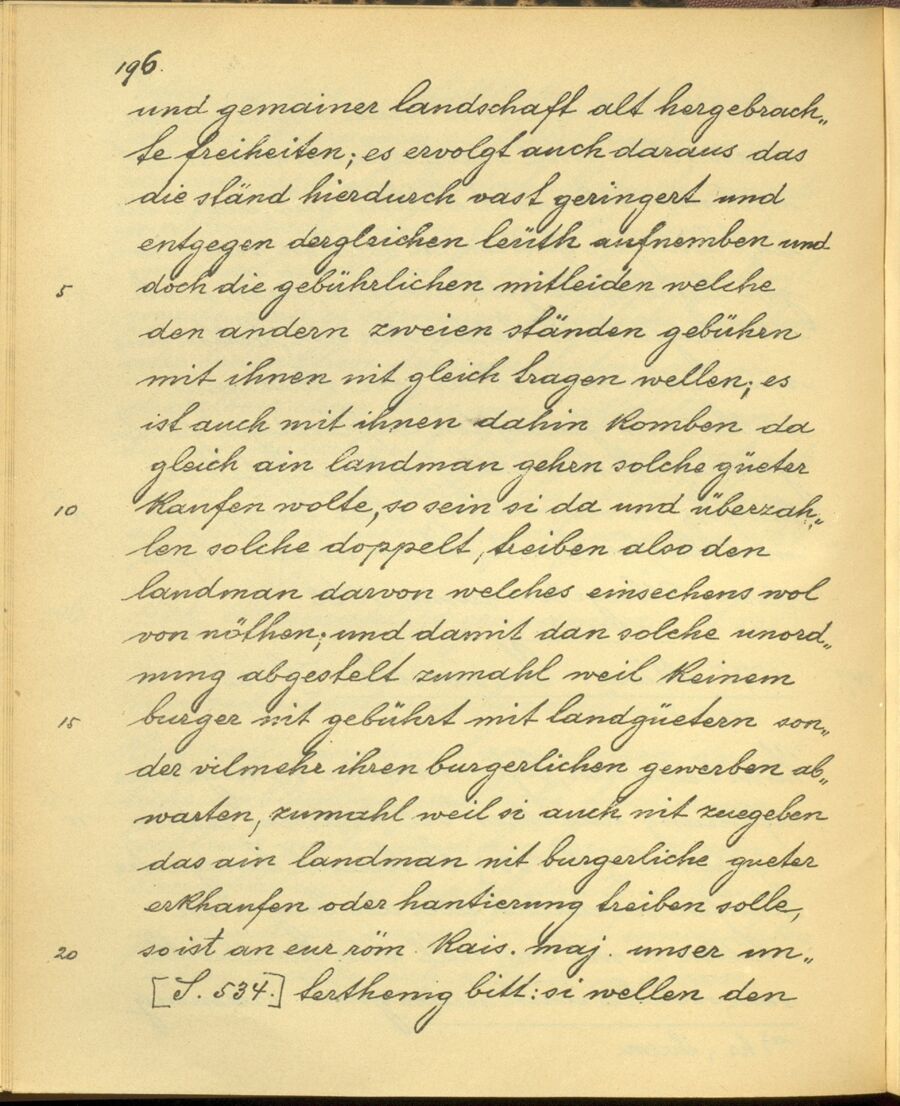 196.
und gemainer landschaft alt hergebrach„
te freiheiten; es ervolgt auch daraus das
die ständ hierdurch vast geringert und
entgegen dergleichen leüth aufnemben und
5 doch die gebührlichen mitleiden welche
den andern zweien ständen gebührn
mit ihnen nit gleich tragen wellen; es
ist auch mit ihnen dahin komben da
gleich ain landman gehrn solche güeter
10 kaufen wolte, so sein si da und überzah„
len solche doppelt, treiben also den
landman darvon welches einsechens wol
von nöthen; und damit dan solche unord„
nung abgestelt zumahl weil keinem
15 burger nit gebührt mit landgüetern son„
der vilmehr ihren burgerlichen gewerben ab„
warten, zumahl weil si auch nit zuegeben
das ain landman nit burgerliche gueter
erkhaufen oder hantierung treiben solle,
20 so ist an eur röm. kais. maj. unser un„
[S. 534.] terthenig bitt: si wellen den